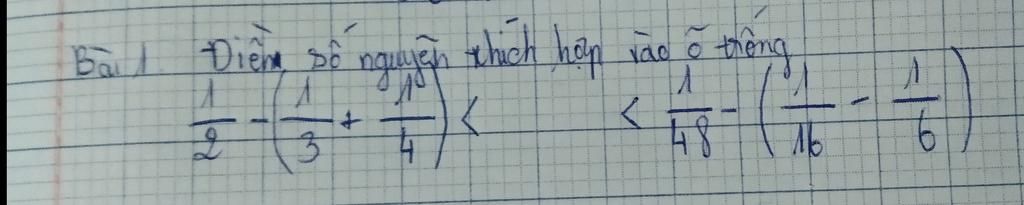 Bài 1. Điền số nguyên thích hợp vào ô trống
1/2 - (1/3 + 1/4) <      < 1/48 - (1/16 - 1/6)